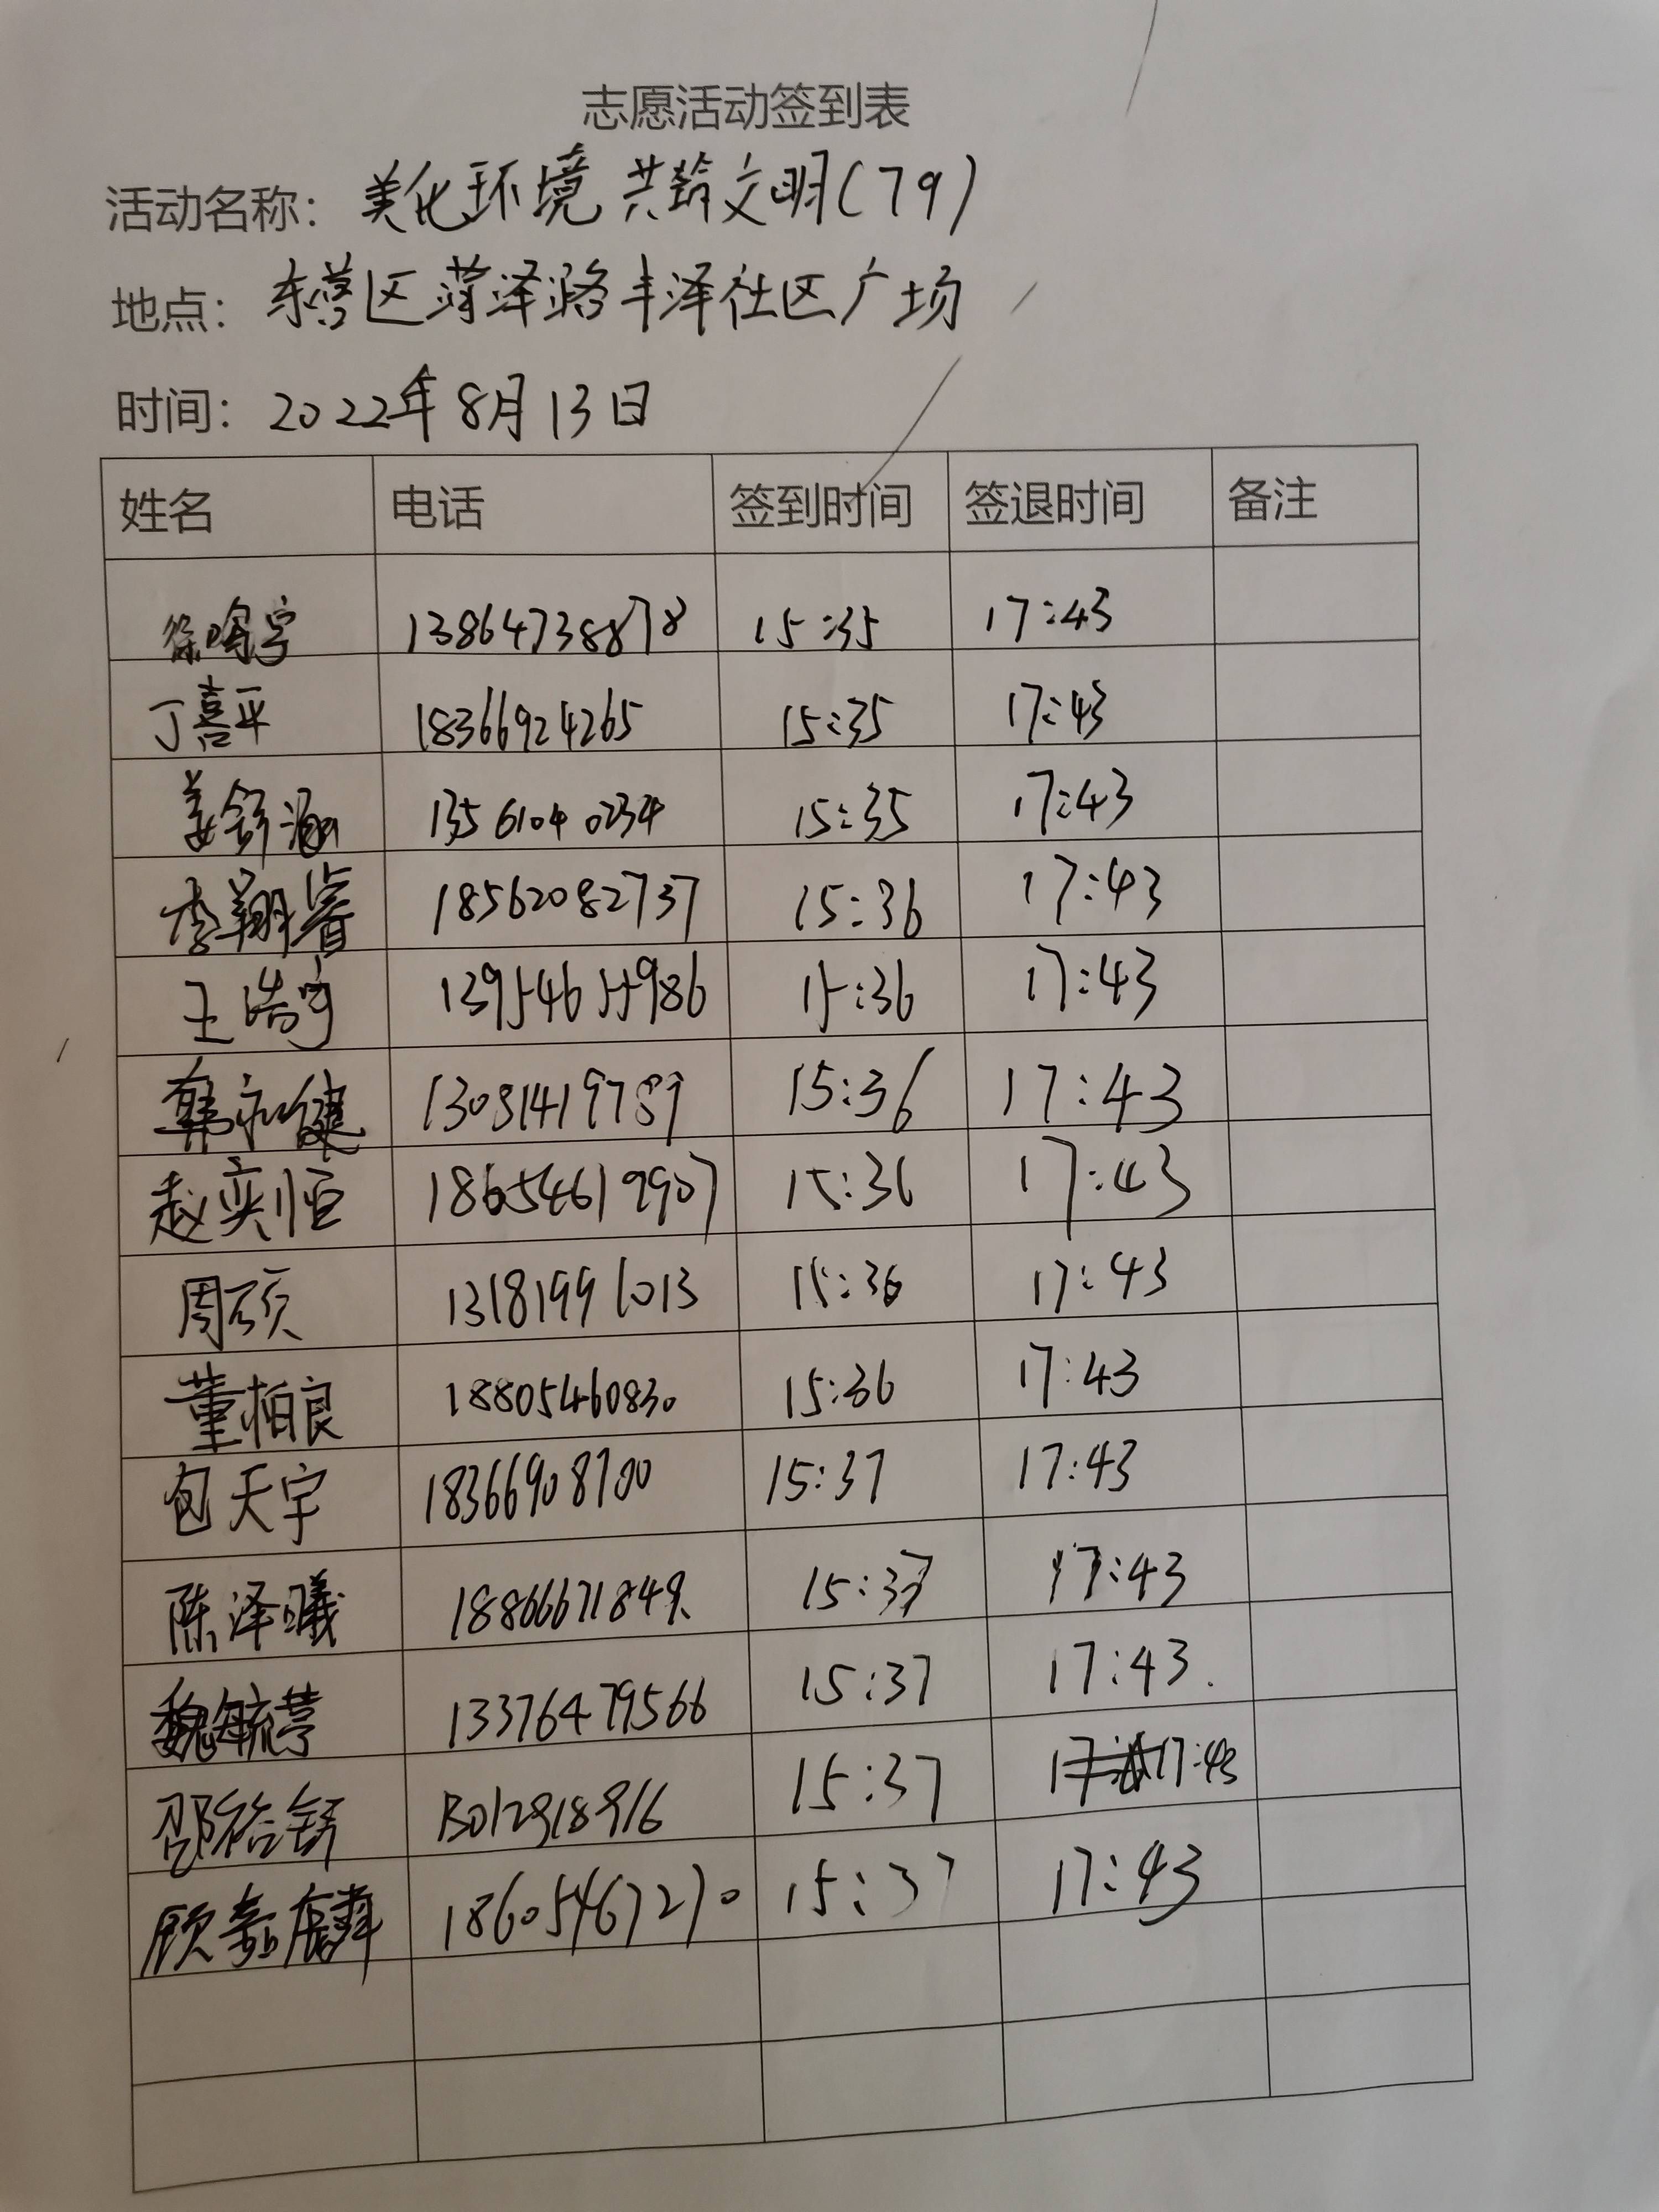 志愿活动签到表
活动名称：美化环境 共筑文明(79)
地点：东营区菏泽路丰泽社区广场
时间：2022年8月13日
姓名 电话 签到时间 签退时间 备注
徐鸣宇 13864738878 15:35 17:43
丁喜平 18366924265 15:35 17:43
姜舒涵 13561040234 15:35 17:43
李翔睿 18562082737 15:36 17:43
王浩宇 13954655986 15:36 17:43
韩永健 13081419789 15:36 17:43
赵奕恒 18654619907 15:36 17:43
周硕 13181991013 15:36 17:43
董柏良 18805460830 15:36 17:43
包天宇 18366908700 15:37 17:43
陈泽曦 18866671849 15:37 17:43
魏毓葶 13376479566 15:37 17:43.
邵裕舒 13012918916 15:37 17:43
顾嘉麟 18605467270 15:37 17:43